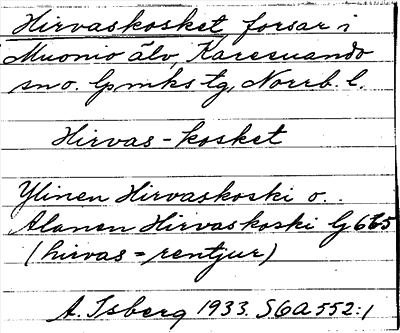 Hirvaskosket, forsar i
Muonio älv, Karesuando
sn o. lpmks tg, Norrb. l.
Hirvas-kosket
Ylinen Hirvaskoski o.
Alanen Hirvaskoski lj 665
(hirvas = rentjur)
A. Isberg 1933. S6A552:1